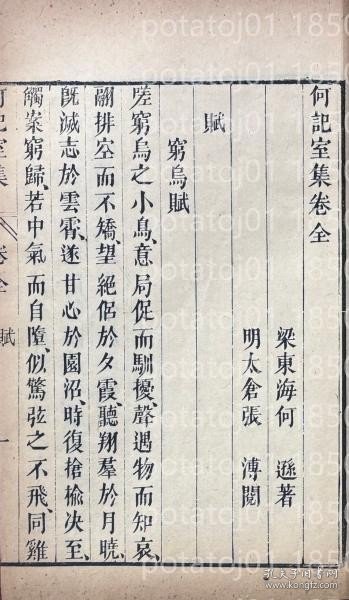 何記室集卷全
梁東海何遜著
明太倉張溥閱
賦
窮烏賦
嗟窮烏之小鳥、意局促而馴擾、聲遇物而知哀、
翮排空而不矯、望絕侶於夕霞、聽翔羣於月曉、
旣滅志於雲霄、遂甘心於園沼、時復搶榆决至、
觸案窮歸、若中氣而自隨、似驚弦之不飛、同雞
何記室集
卷全
賦
一
potatoj01 1850
孔夫子旧书网